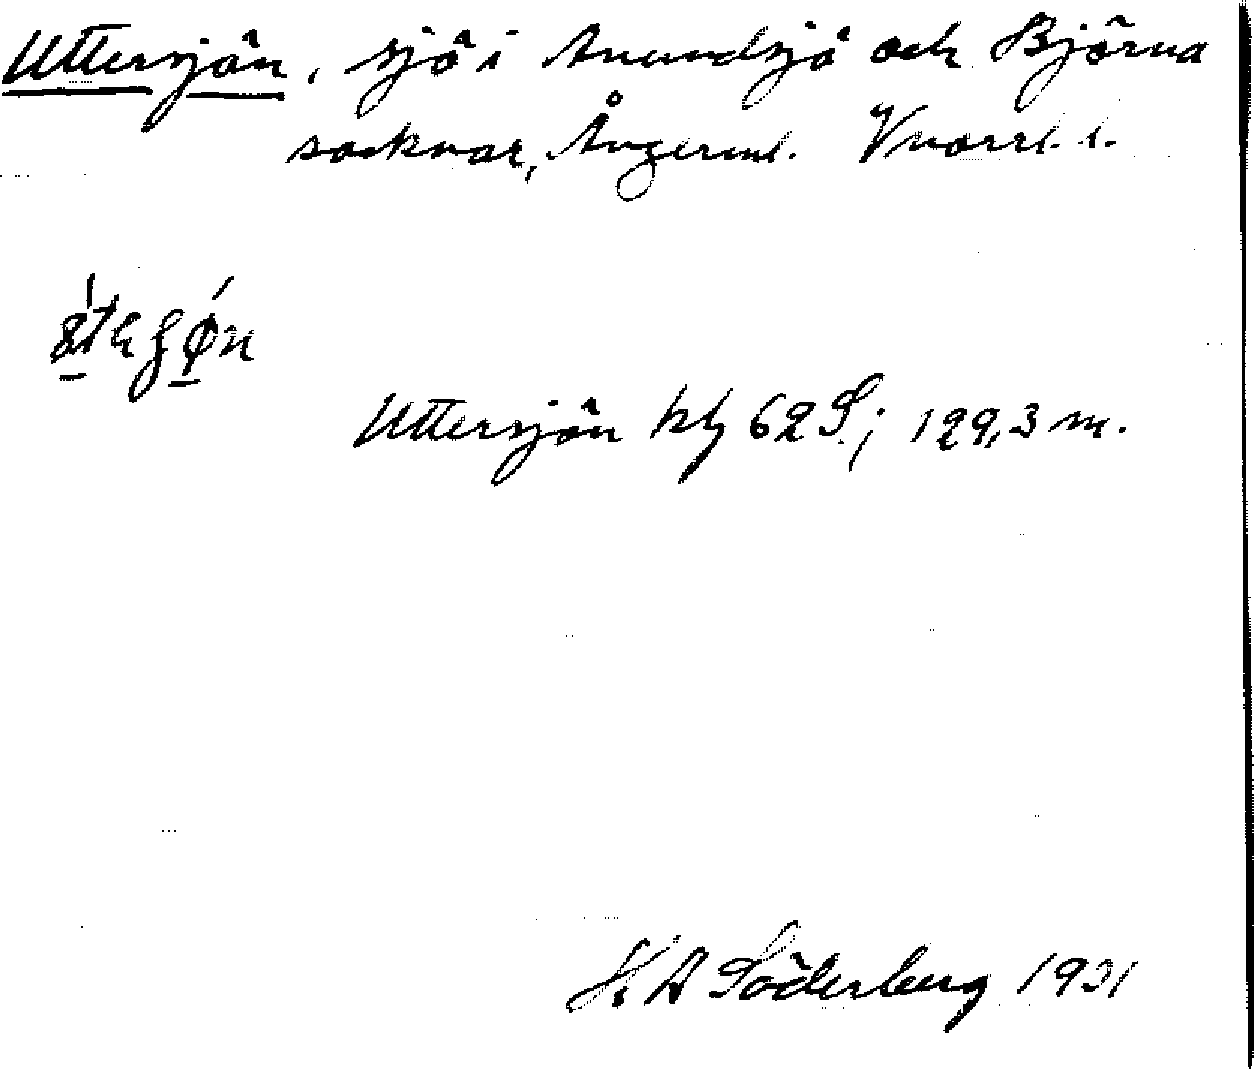 Uttersjön, sjö i Anundsjö och Björna
socknar, Ångerml. Vnorrl. l.
Uttersjön kbl 62 S.; 129,3 m.
K. A Söderberg 1931